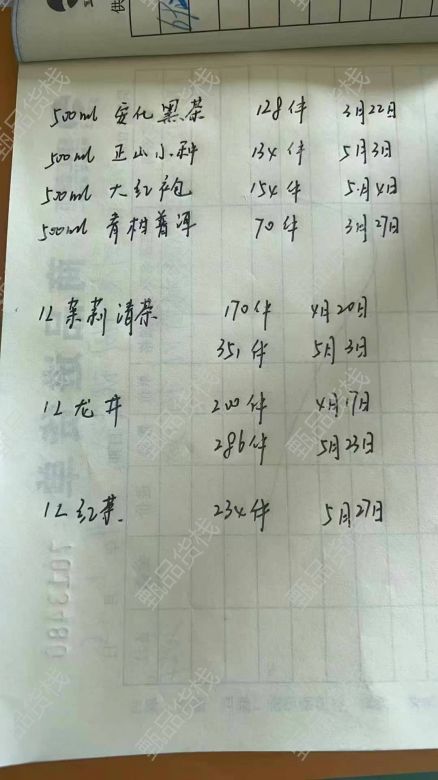 500ml 安化黑茶 128件 3月22日
500ml 正山小种 134件 5月3日
500ml 大红袍 154件 5月4日
500ml 青柑普洱 70件 3月27日
1L 茉莉清茶 170件 4月20日
351件 5月3日
1L 龙井 200件 4月17日
286件 5月23日
1L 红茶. 234件 5月27日
甄品货栈